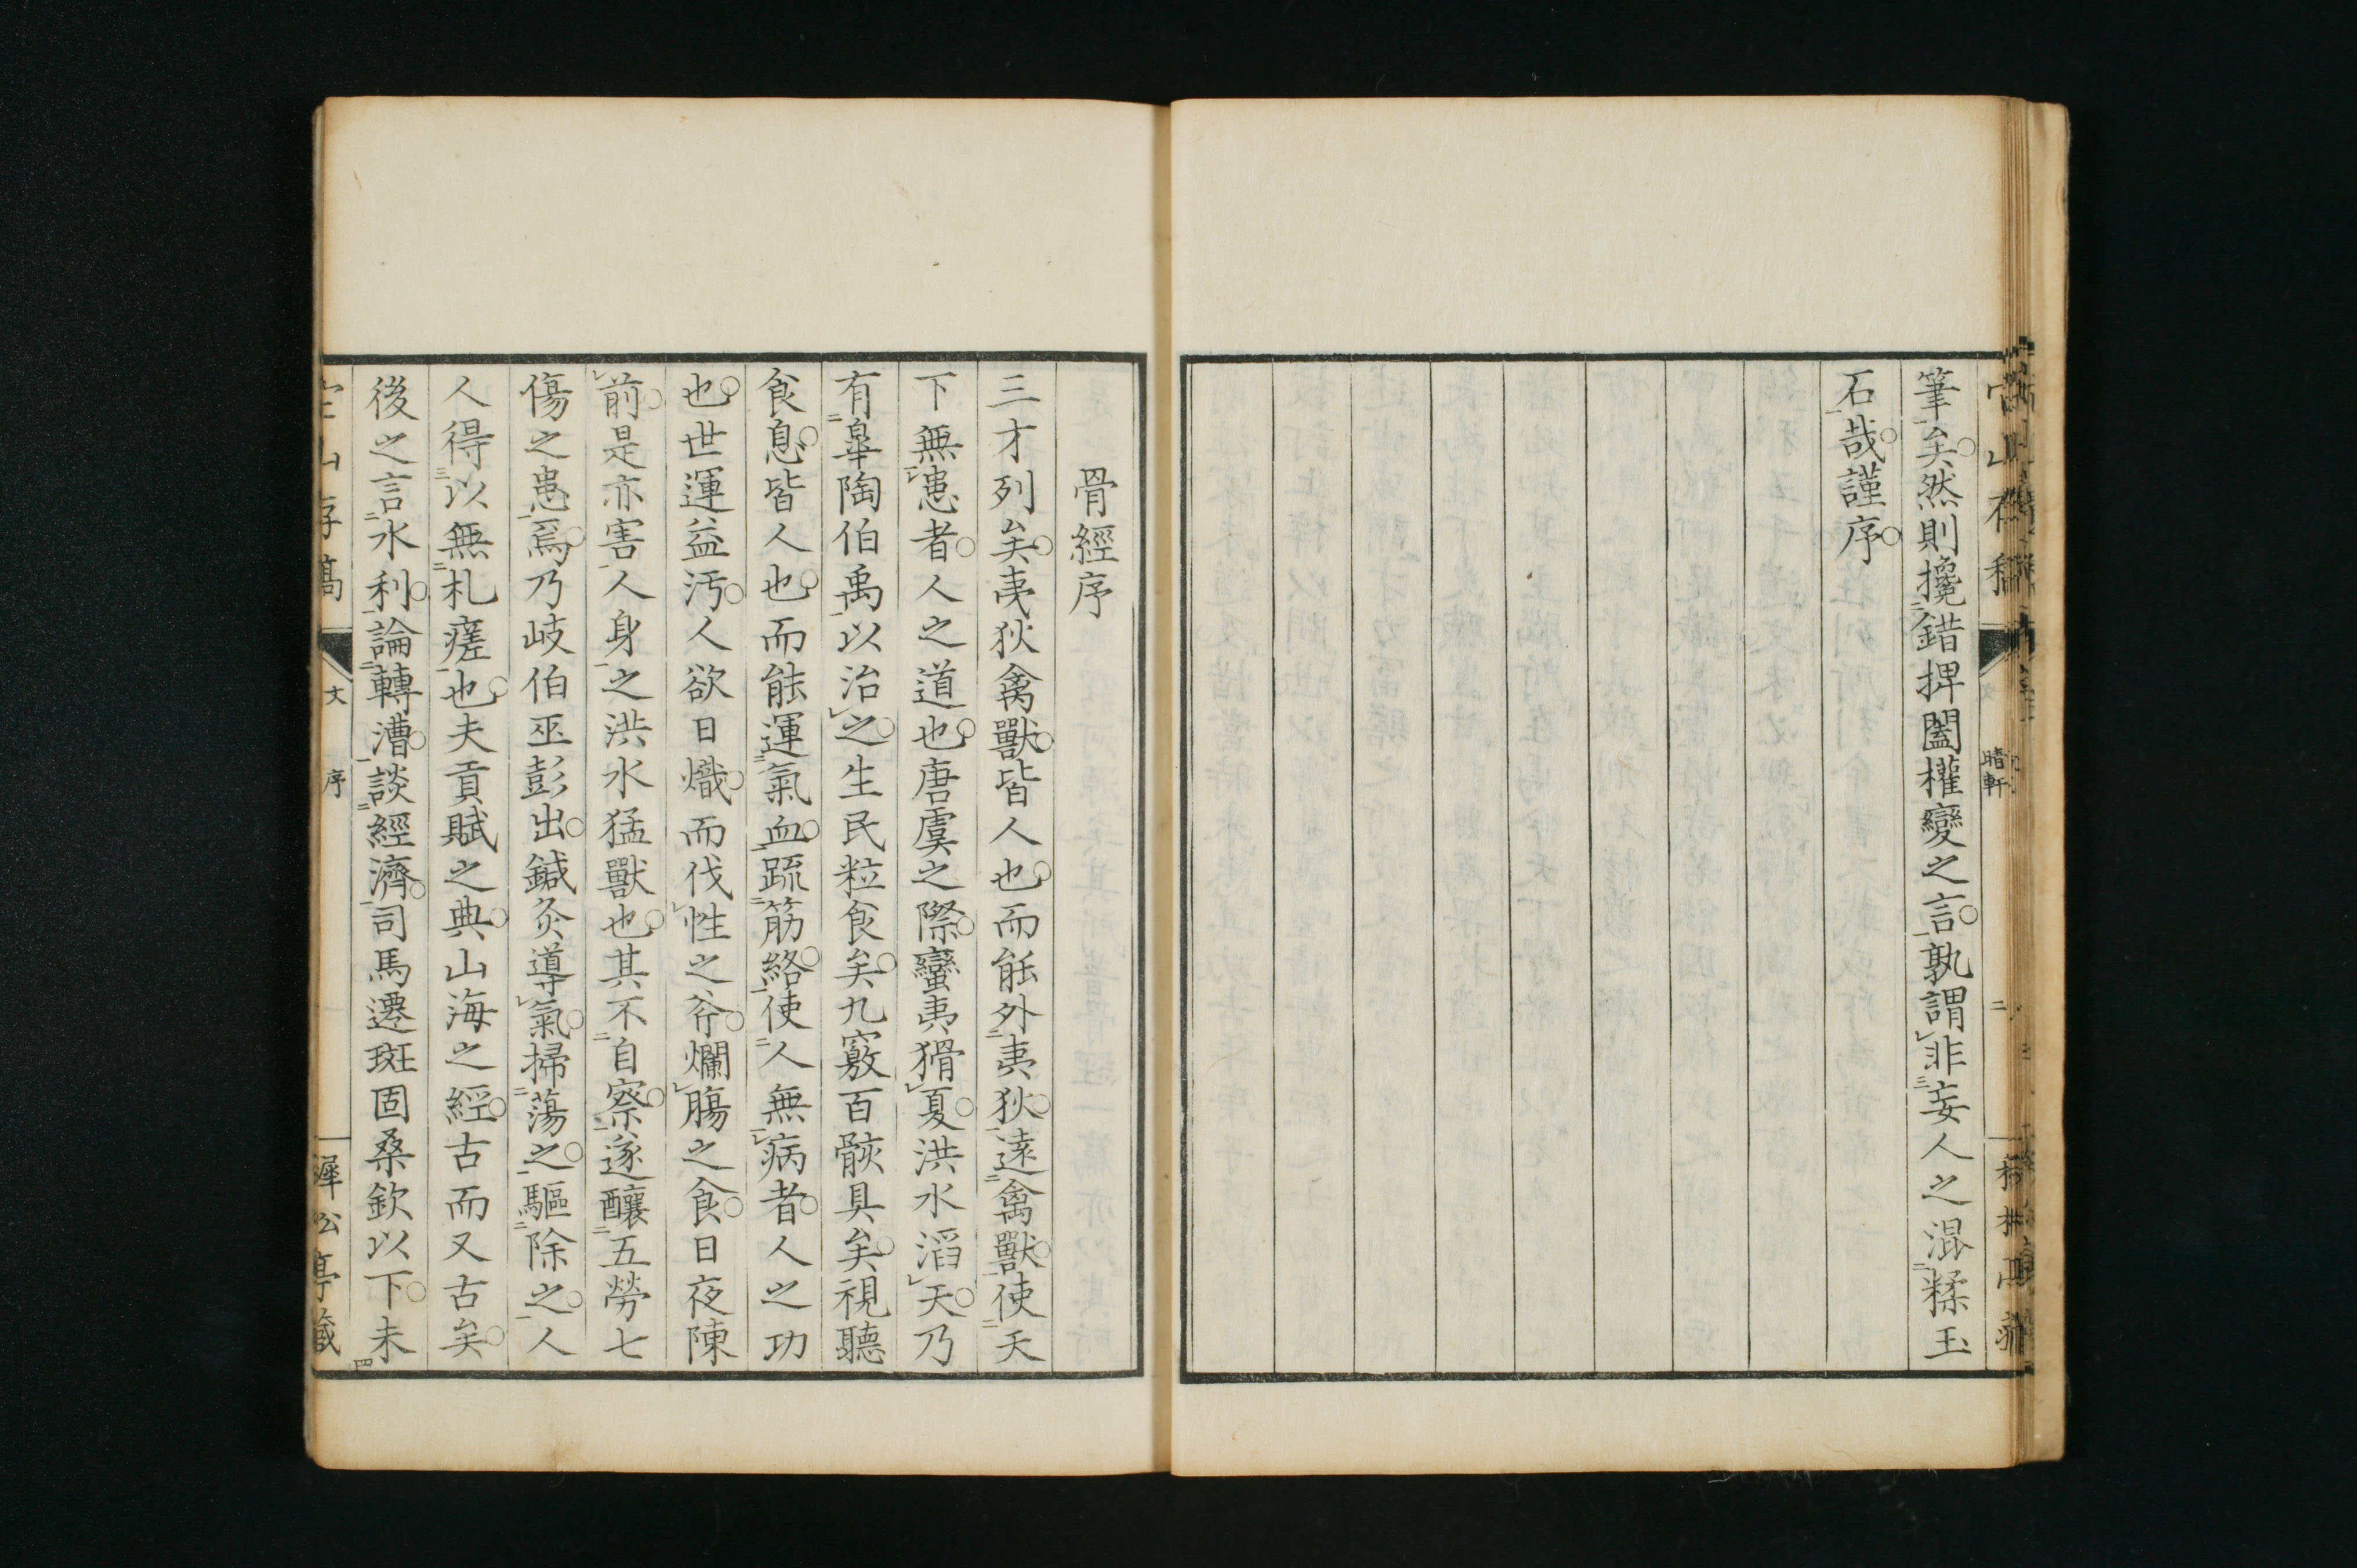 筆矣然則攙錯捭闔權變之言孰謂非妄人之混糅玉
石哉謹序
骨經序
三才列矣夷狄禽獸皆人也而能外夷狄遠禽獸使天
下無患者人之道也唐虞之際蠻夷猾夏洪水滔天乃
有皋陶伯禹以治之生民粒食矣九竅百骸具矣視聽
食息皆人也而能運氣血疏筋絡使人無病者人之功
也世運益汚人欲日熾而伐性之斧爛腸之食日夜陳
前是亦害人身之洪水猛獸也其不自察遂釀五勞七
傷之患焉乃岐伯巫彭出鍼灸導氣掃蕩之驅除之人
人得以無札瘥也夫貢賦之典山海之經古而又古矣
後之言水利論轉漕談經濟司馬遷班固桑欽以下未
文 序